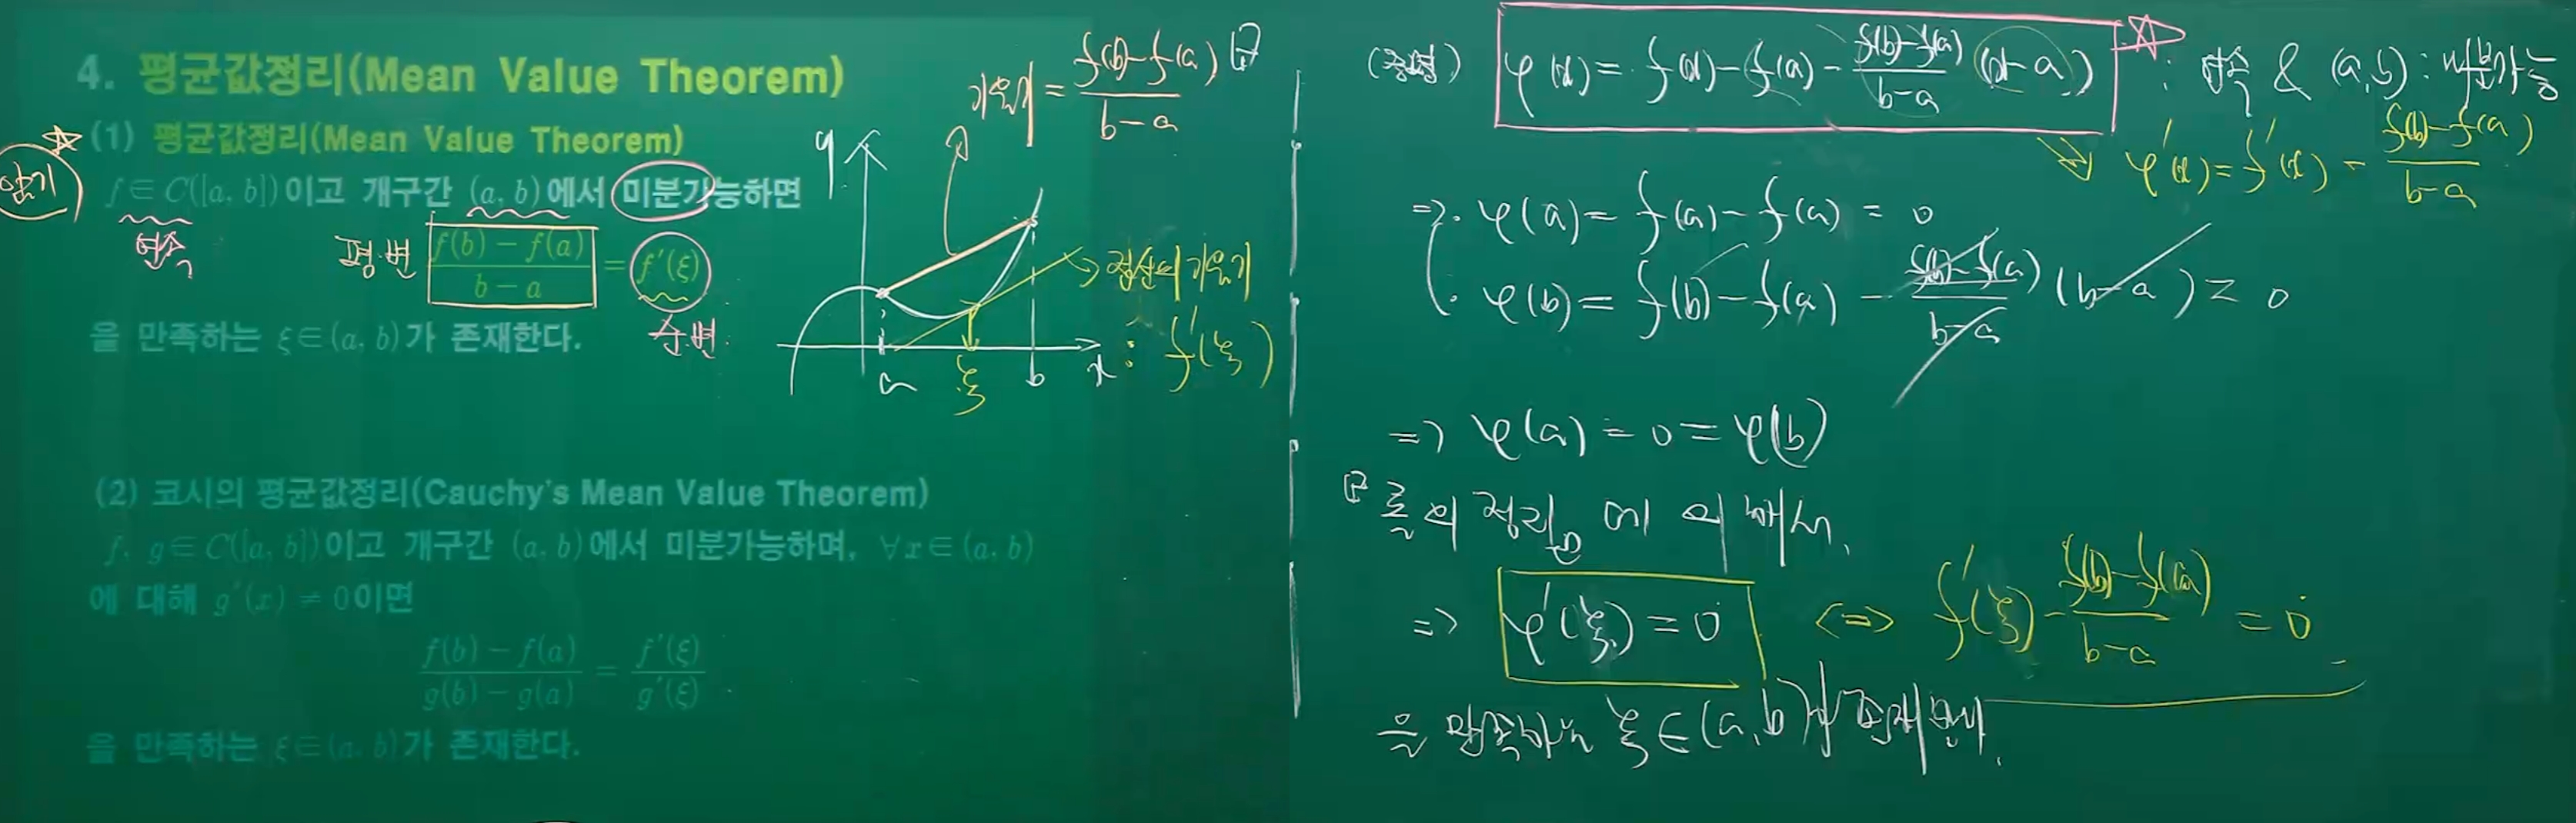 4. 평균값정리(Mean Value Theorem)
(1) 평균값정리(Mean Value Theorem)
암기
f ∈ C([a, b])이고 개구간 (a, b)에서 미분가능하면
연속
평·변 (f(b) − f(a))/(b − a) = f′(ξ)
순·변
을 만족하는 ξ∈(a, b)가 존재한다.
기울기 = (f(b)−f(a))/(b−a)
y
접선의 기울기
: f′(ξ)
a ξ b x
(2) 코시의 평균값정리(Cauchy's Mean Value Theorem)
f, g∈C([a, b])이고 개구간 (a, b)에서 미분가능하며, ∀x∈(a, b)
에 대해 g′(x) ≠ 0이면
(f(b) − f(a))/(g(b) − g(a)) = f′(ξ)/g′(ξ)
을 만족하는 ξ∈(a, b)가 존재한다.
(증명) φ(x) = f(x) − f(a) − (f(b)−f(a))/(b−a) (x−a) : 연속 & (a, b) : 미분가능
φ′(x) = f′(x) − (f(b)−f(a))/(b−a)
⇒ φ(a) = f(a) − f(a) = 0
φ(b) = f(b) − f(a) − (f(b)−f(a))/(b−a) (b−a) = 0
⇒ φ(a) = 0 = φ(b)
롤의 정리에 의해서,
⇒ φ′(ξ) = 0 ⇔ f′(ξ) − (f(b)−f(a))/(b−a) = 0
을 만족하는 ξ∈(a, b)가 존재한다.